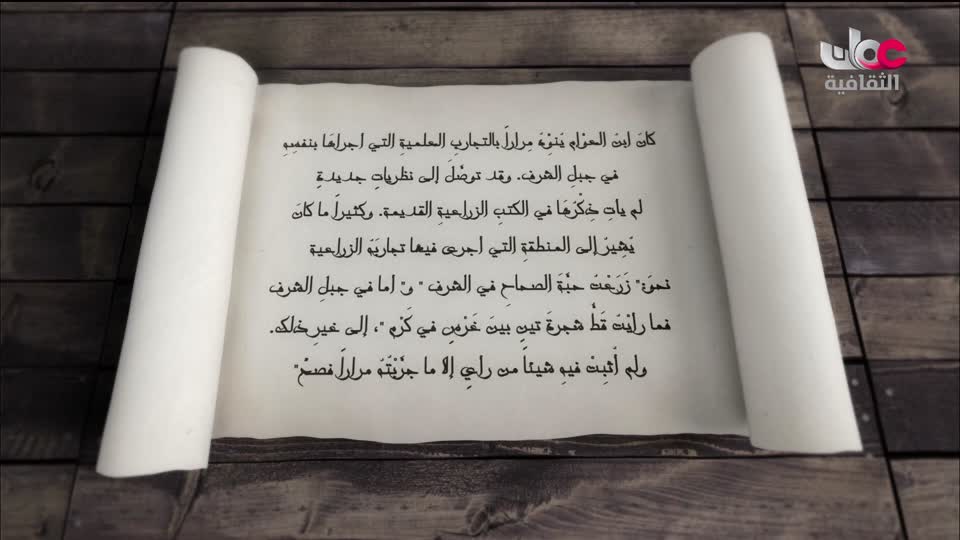 عمان
الثقافية
كانَ ابن العوّام يَنوّهُ مِراراً بالتجاربِ العلميةِ التي أجراها بنفسِهِ
في جبلِ الشرف. وقد توصَّلَ إلى نظرياتٍ جديدةٍ
لم يأتِ ذِكْرُها في الكتبِ الزراعيةِ القديمة. وكثيراً ما كانَ
يُشيرُ إلى المنطقةِ التي أجرى فيها تجاربَهُ الزراعية
نحوَ:" زَرَعْتُ حبَّةَ الصماحِ في الشرف " وَ" أما في جبلِ الشرف
فما رأيْتُ قَطُّ شجرةَ تينٍ بينَ غَرْسٍ في كَرْمٍ "، إلى غيرِ ذلك.
ولم أُثبِتْ فيهِ شيئاً من رأيي إلا ما جرَّبْتُهُ مراراً فصحَّ"